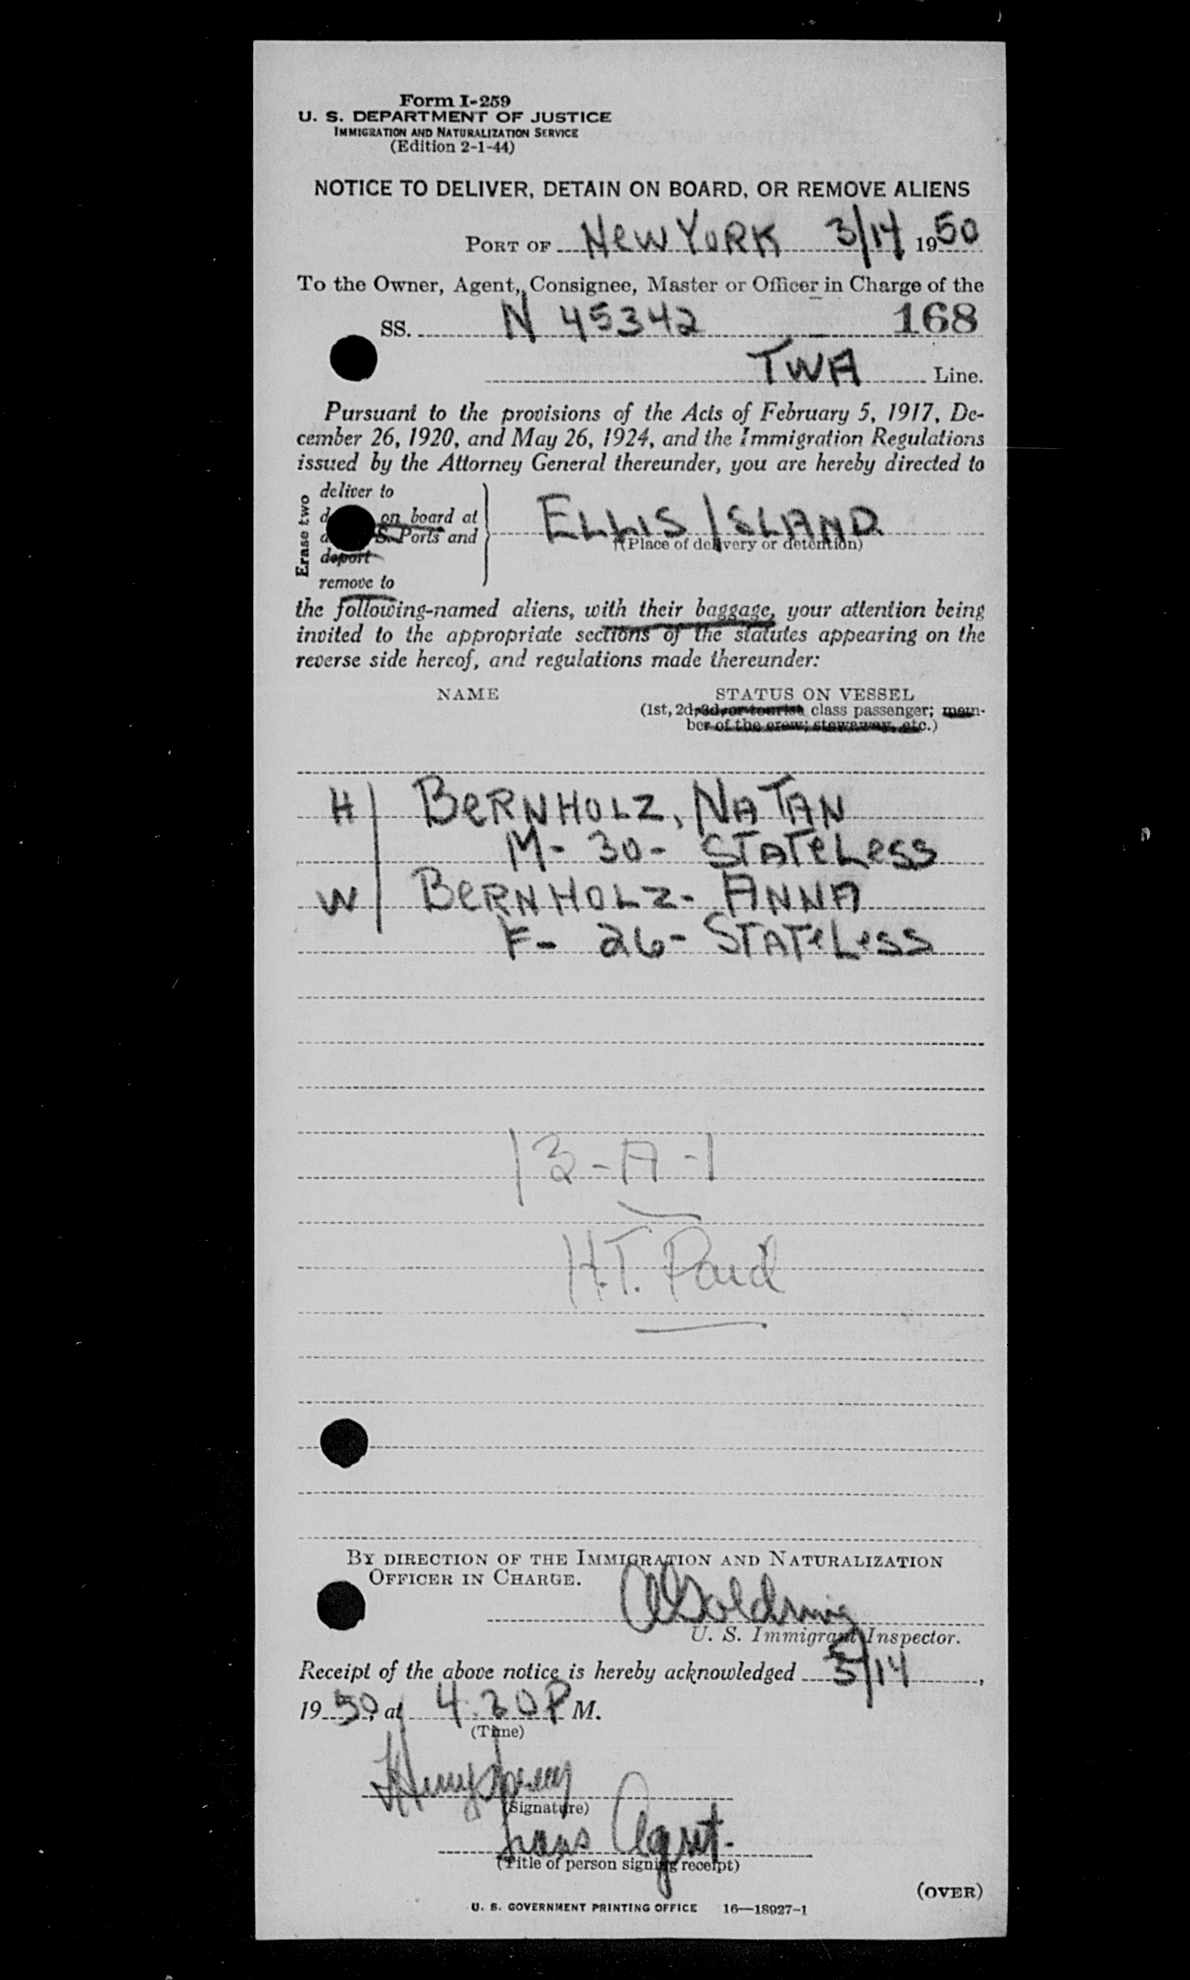 Form I-259
U. S. DEPARTMENT OF JUSTICE
IMMIGRATION AND NATURALIZATION SERVICE
(Edition 2-1-44)
NOTICE TO DELIVER, DETAIN ON BOARD, OR REMOVE ALIENS
PORT OF New YORK 3/14 1950
To the Owner, Agent, Consignee, Master or Officer in Charge of the
SS. N 45342 168
TWA Line.
Pursuant to the provisions of the Acts of February 5, 1917, De-
cember 26, 1920, and May 26, 1924, and the Immigration Regulations
issued by the Attorney General thereunder, you are hereby directed to
Erase two
deliver to
on board at
S. Ports and
deport
remove to
ELLIS ISLAND
(Place of delivery or detention)
the following-named aliens, with their baggage, your attention being
invited to the appropriate sections of the statutes appearing on the
reverse side hereof, and regulations made thereunder:
NAME STATUS ON VESSEL
(1st, 2d, 3d, or tourist class passenger; mem-
ber of the crew; stowaway, etc.)
H BERNHOLZ, NATAN
M- 30- STATELESS
W BERNHOLZ- ANNA
F- 26- STATELESS
13-A-1
H.T. Paid
BY DIRECTION OF THE IMMIGRATION AND NATURALIZATION
OFFICER IN CHARGE.
U. S. Immigrant Inspector.
Receipt of the above notice is hereby acknowledged 3/14,
1950, at 4.30 P M.
(Time)
(Signature)
Agent.
(Title of person signing receipt)
(OVER)
U. S. GOVERNMENT PRINTING OFFICE 16—18927-1